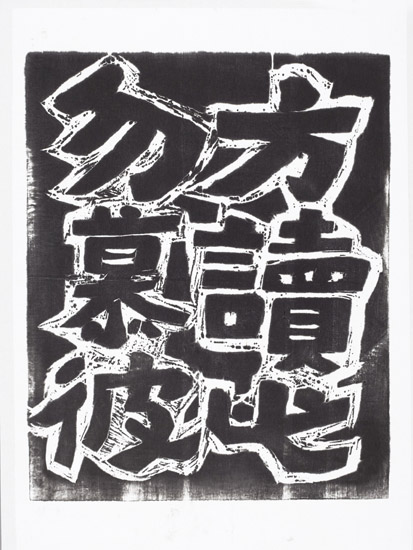 方讀此
勿慕彼